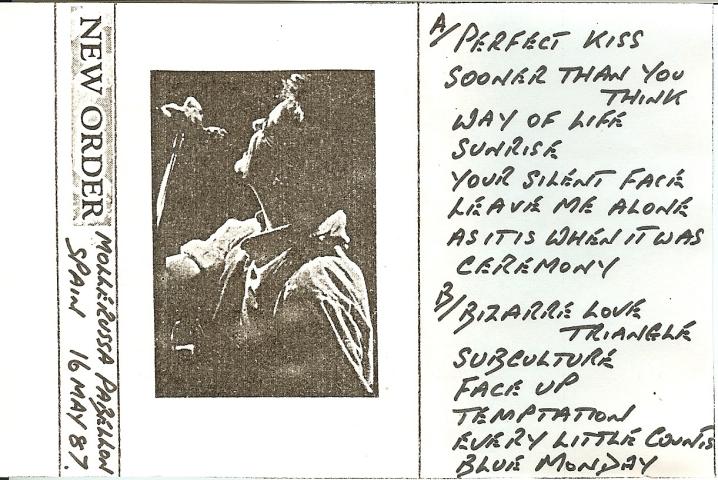 NEW ORDER
MOLLERUSSA PABELLON
SPAIN 16 MAY 87.
A/ PERFECT KISS
SOONER THAN YOU
THINK
WAY OF LIFE
SUNRISE
YOUR SILENT FACE
LEAVE ME ALONE
AS IT IS WHEN IT WAS
CEREMONY
B/ BIZARRE LOVE
TRIANGLE
SUBCULTURE
FACE UP
TEMPTATION
EVERY LITTLE COUNTS
BLUE MONDAY